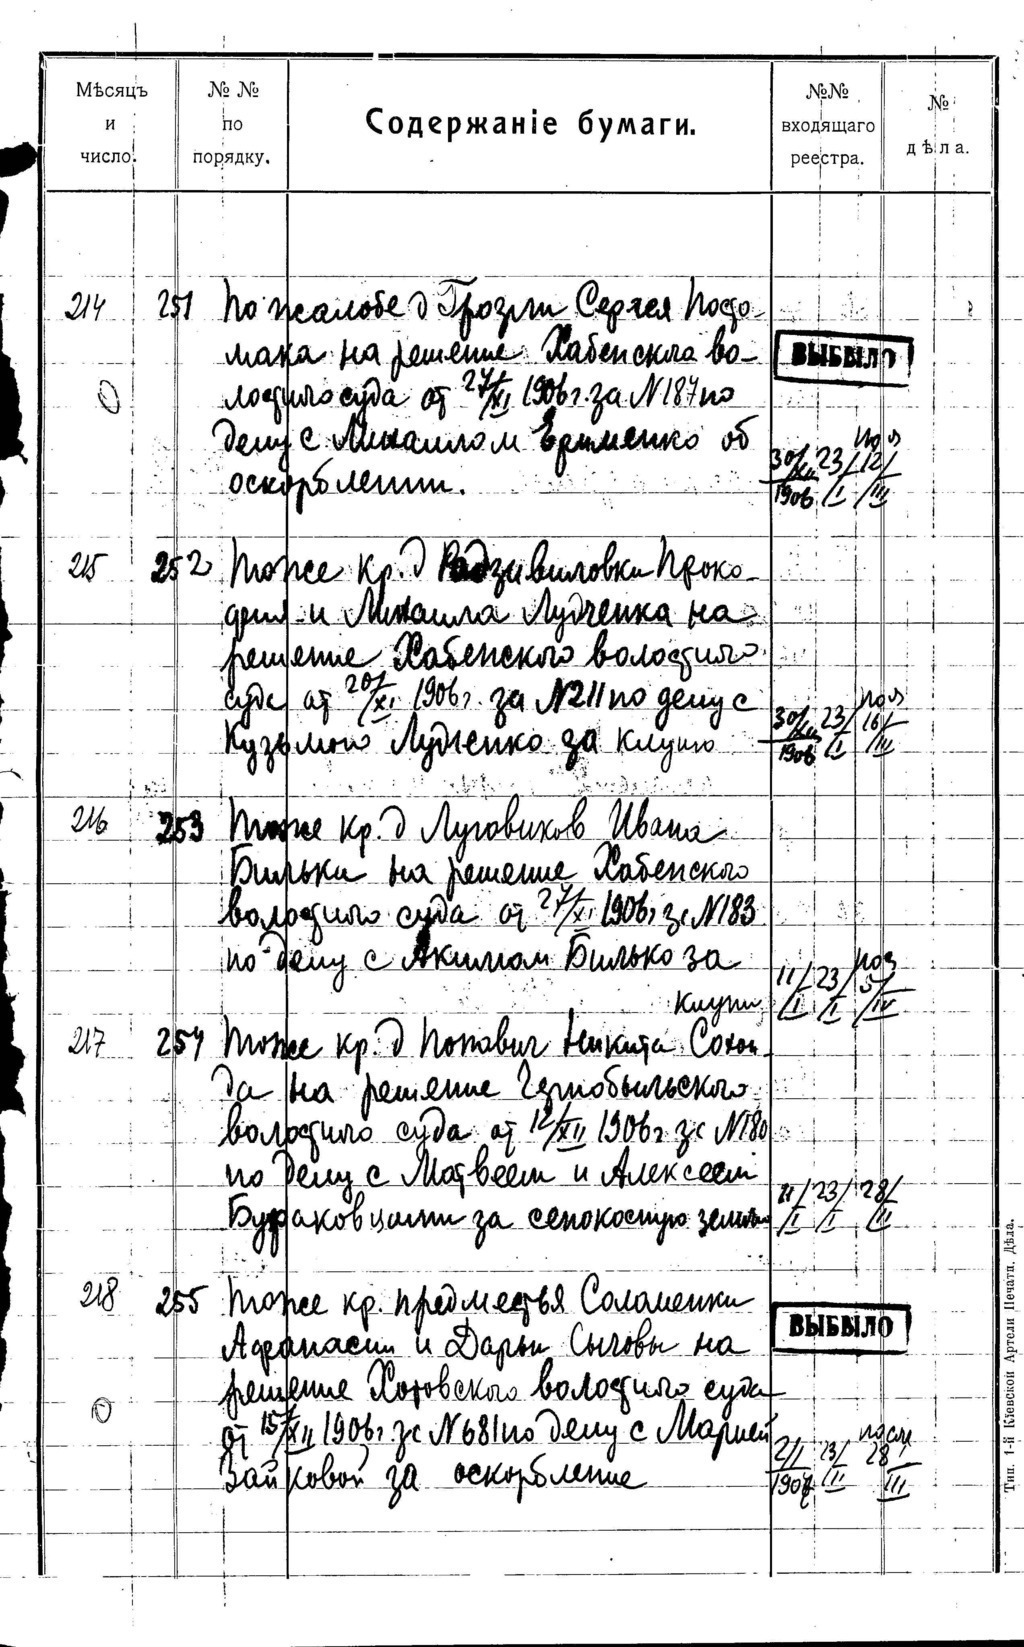 Мѣсяцъ и число.
№ № по порядку.
Содержаніе бумаги.
№№ входящаго реестра.
№ дѣла.
214 251 По жалобе д Грозли Сергея
мака на решение Хабенскло во-
лостнло суда от 27/XI 1906 г. за N 187 по
делу с Михаилом Ерименко об
оскорблении.
ВЫБЫЛО
30/XII 1906 23/I 12/III
215 252 тоже кр. д Радзивиловки Проко-
фия и Михаила Лудченка на
решение Хабенскло волостнло
суда от 20/XI 1906 г. за N 211 по делу с
Кузьмою Лудченко за клуню
30/XII 1906 23/I 16/III
216 253 тоже кр. д Луговиков Ивана
Бильки на решение Хабенскло
волостнло суда от 27/XI 1906 г зс N 183
по делу с Акимом Билько за
клуню
11/I 23/I 5/IV
217 254 тоже кр. д Попович Никита
да на решение Чернобыльскло
волостнло суда от 12/XII 1906 г зс N 180
по делу с Матвеем и Алексеем
Бураковцими за сенокосную землю
11/I 23/I 28/III
218 255 тоже кр. предместья Соломенки
Афанасии и Дарьи Сычовы на
решение Хотовскло волостнло суда
от 15/XII 1906 г зс N 681 по делу с Марией
Зайковой за оскорбление
ВЫБЫЛО
2/I 1907 23/II 28/III
Тип. 1-й Кіевской Артели Печатн. Дѣла.